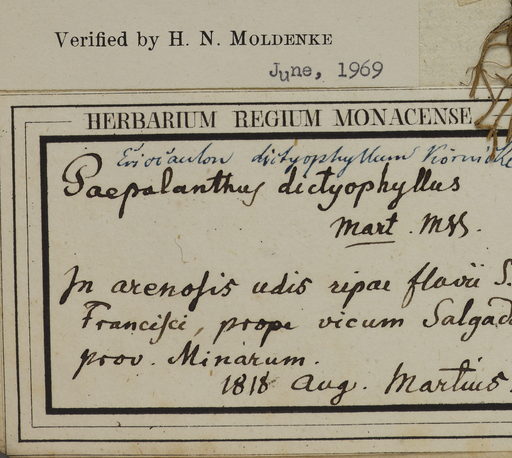 Verified by H. N. MOLDENKE
June, 1969
HERBARIUM REGIUM MONACENSE
Eriocaulon dictyophyllum Körnicke
Paepalanthus dictyophyllus
Mart. MSS.
In arenosis udis ripae fluvii S.
Francisci, prope vicum Salgado
prov. Minarum.
1818 Aug. Martius.